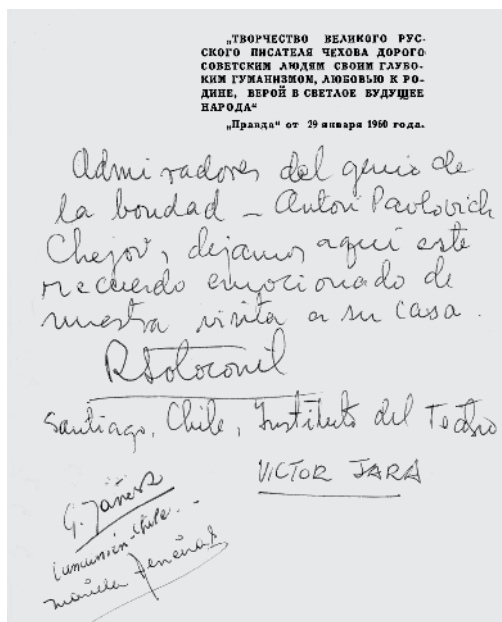 „ТВОРЧЕСТВО ВЕЛИКОГО РУС-
СКОГО ПИСАТЕЛЯ ЧЕХОВА ДОРОГО
СОВЕТСКИМ ЛЮДЯМ СВОИМ ГЛУБО-
КИМ ГУМАНИЗМОМ, ЛЮБОВЬЮ К РО-
ДИНЕ, ВЕРОЙ В СВЕТЛОЕ БУДУЩЕЕ
НАРОДА“
„Правда“ от 29 января 1960 года.
Admiradores del genio de
la bondad – Anton Pavlovich
Chejov, dejamos aquí este
recuerdo emocionado de
nuestra visita a su casa.
Santiago, Chile, Instituto del Teatro
VICTOR JARA
G.
Chile